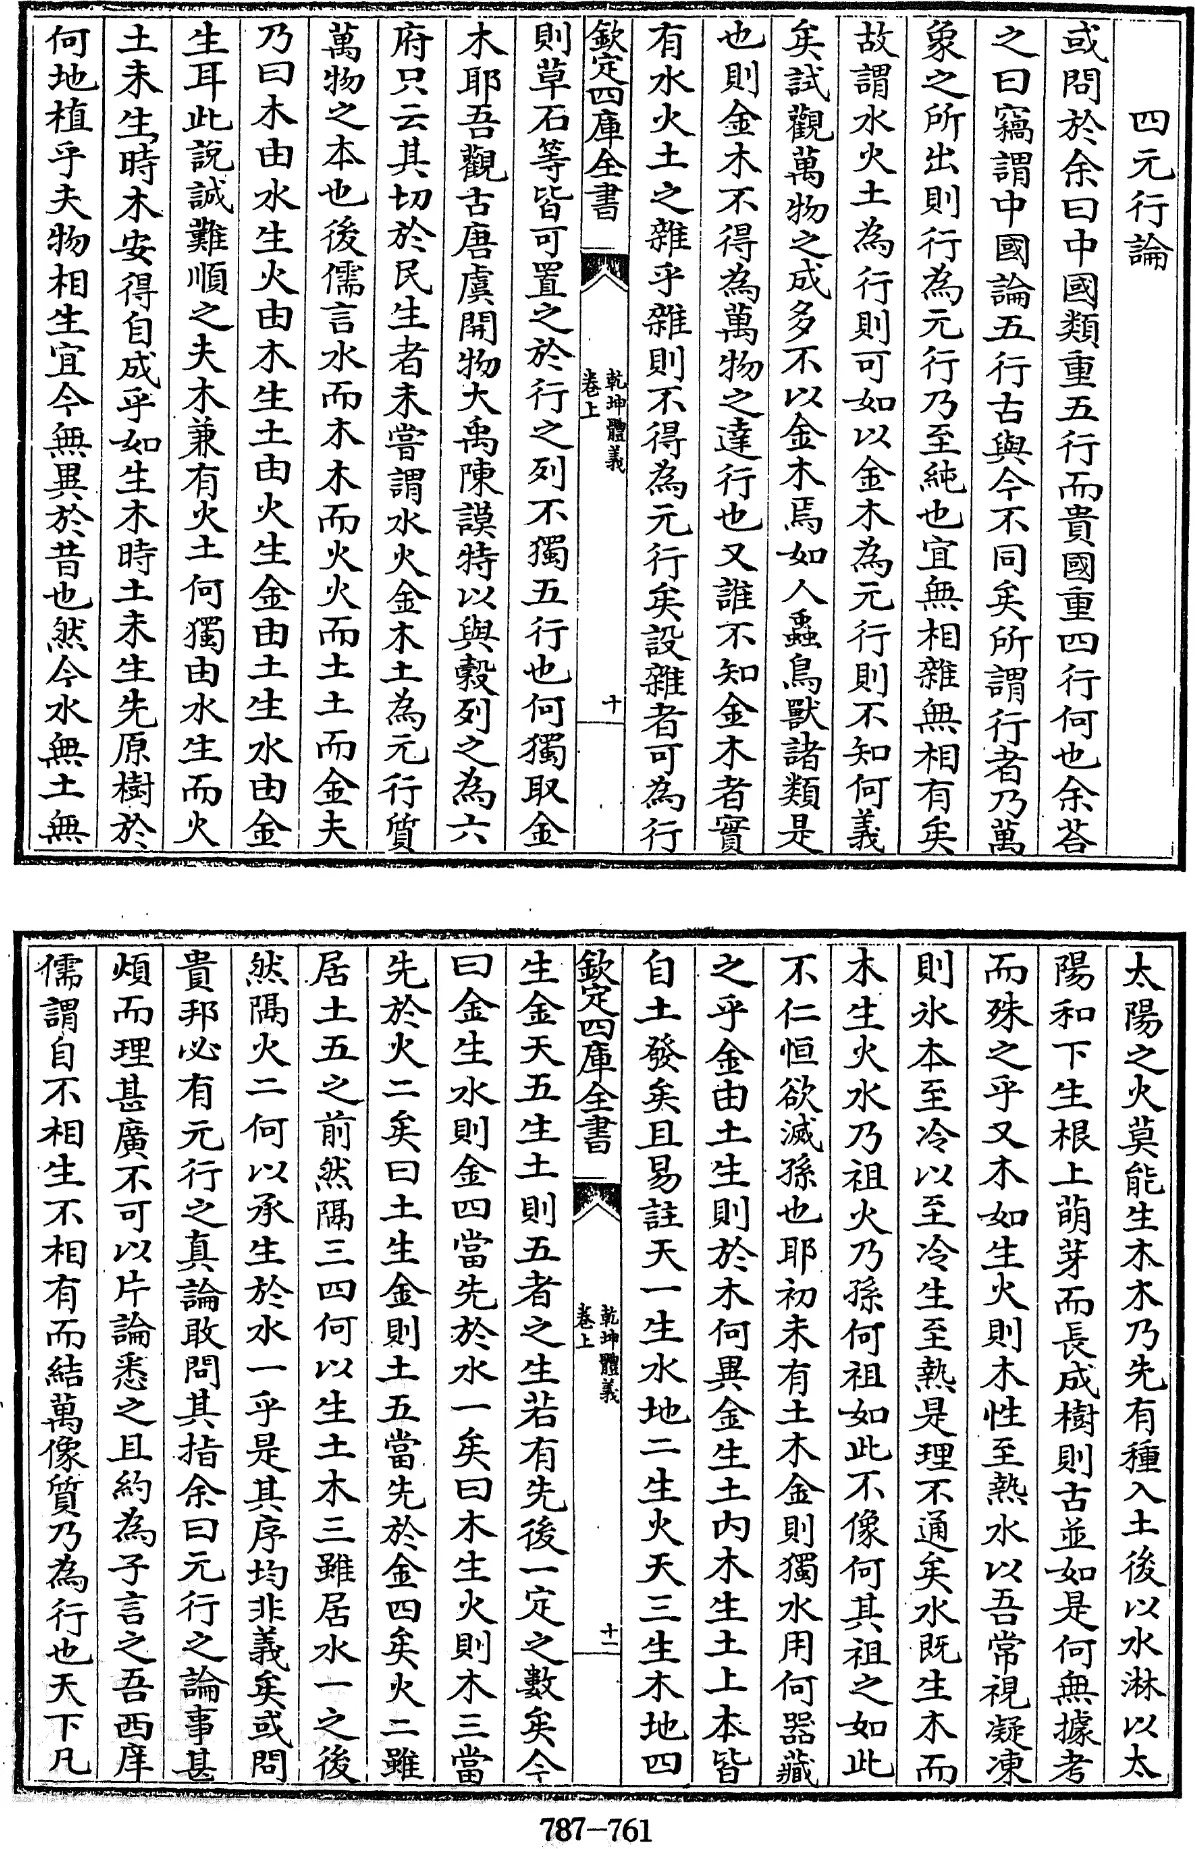 四元行論
或問於余曰中國類重五行而貴國重四行何也余荅
之曰竊謂中國論五行古與今不同矣所謂行者乃萬
象之所出則行為元行乃至純也宜無相雜無相有矣
故謂水火土為行則可如以金木為元行則不知何義
矣試觀萬物之成多不以金木焉如人蟲鳥獸諸類是
也則金木不得為萬物之達行也又誰不知金木者實
有水火土之雜乎雜則不得為元行矣設雜者可為行
欽定四庫全書
乾坤體義
卷上
十
則草石等皆可置之於行之列不獨五行也何獨取金
木耶吾觀古唐虞開物大禹陳謨特以與穀列之為六
府只云其切於民生者未嘗謂水火金木土為元行質
萬物之本也後儒言水而木木而火火而土土而金夫
乃曰木由水生火由木生土由火生金由土生水由金
生耳此說誠難順之夫木兼有火土何獨由水生而火
土未生時木安得自成乎如生木時土未生先原樹於
何地植乎夫物相生宜今無異於昔也然今水無土無
太陽之火莫能生木木乃先有種入土後以水淋以太
陽和下生根上萌芽而長成樹則古並如是何無據考
而殊之乎又木如生火則木性至熱水以吾常視凝凍
則氷本至冷以至冷生至熱是理不通矣水既生木而
木生火水乃祖火乃孫何祖如此不像何其祖之如此
不仁恒欲滅孫也耶初未有土木金則獨水用何器藏
之乎金由土生則於木何異金生土内木生土上本皆
自土發矣且易註天一生水地二生火天三生木地四
欽定四庫全書
乾坤體義
卷上
十一
生金天五生土則五者之生若有先後一定之數矣今
曰金生水則金四當先於水一矣曰木生火則木三當
先於火二矣曰土生金則土五當先於金四矣火二雖
居土五之前然隔三四何以生土木三雖居水一之後
然隔火二何以承生於水一乎是其序均非義矣或問
貴邦必有元行之真論敢問其指余曰元行之論事甚
煩而理甚廣不可以片論悉之且約為子言之吾西庠
儒謂自不相生不相有而結萬像質乃為行也天下凡
787-761